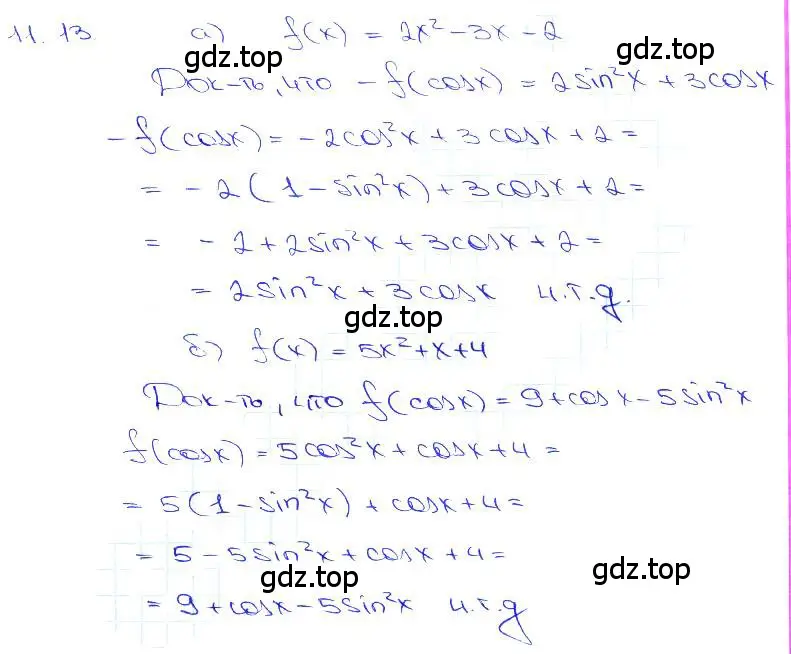 11.13 а) f(x) = 2x² - 3x - 2
gdz.top
Док-ть, что - f(cosx) = 2sin²x + 3cosx
- f(cosx) = - 2cos²x + 3cosx + 2 =
= - 2(1 - sin²x) + 3cosx + 2 =
= - 2 + 2sin²x + 3cosx + 2 =
= 2sin²x + 3cosx ч.т.д.
gdz.top
б) f(x) = 5x² + x + 4
Док-ть, что f(cosx) = 9 + cosx - 5sin²x
f(cosx) = 5cos²x + cosx + 4 =
= 5(1 - sin²x) + cosx + 4 =
= 5 - 5sin²x + cosx + 4 =
gdz.top gdz.top
= 9 + cosx - 5sin²x ч.т.д